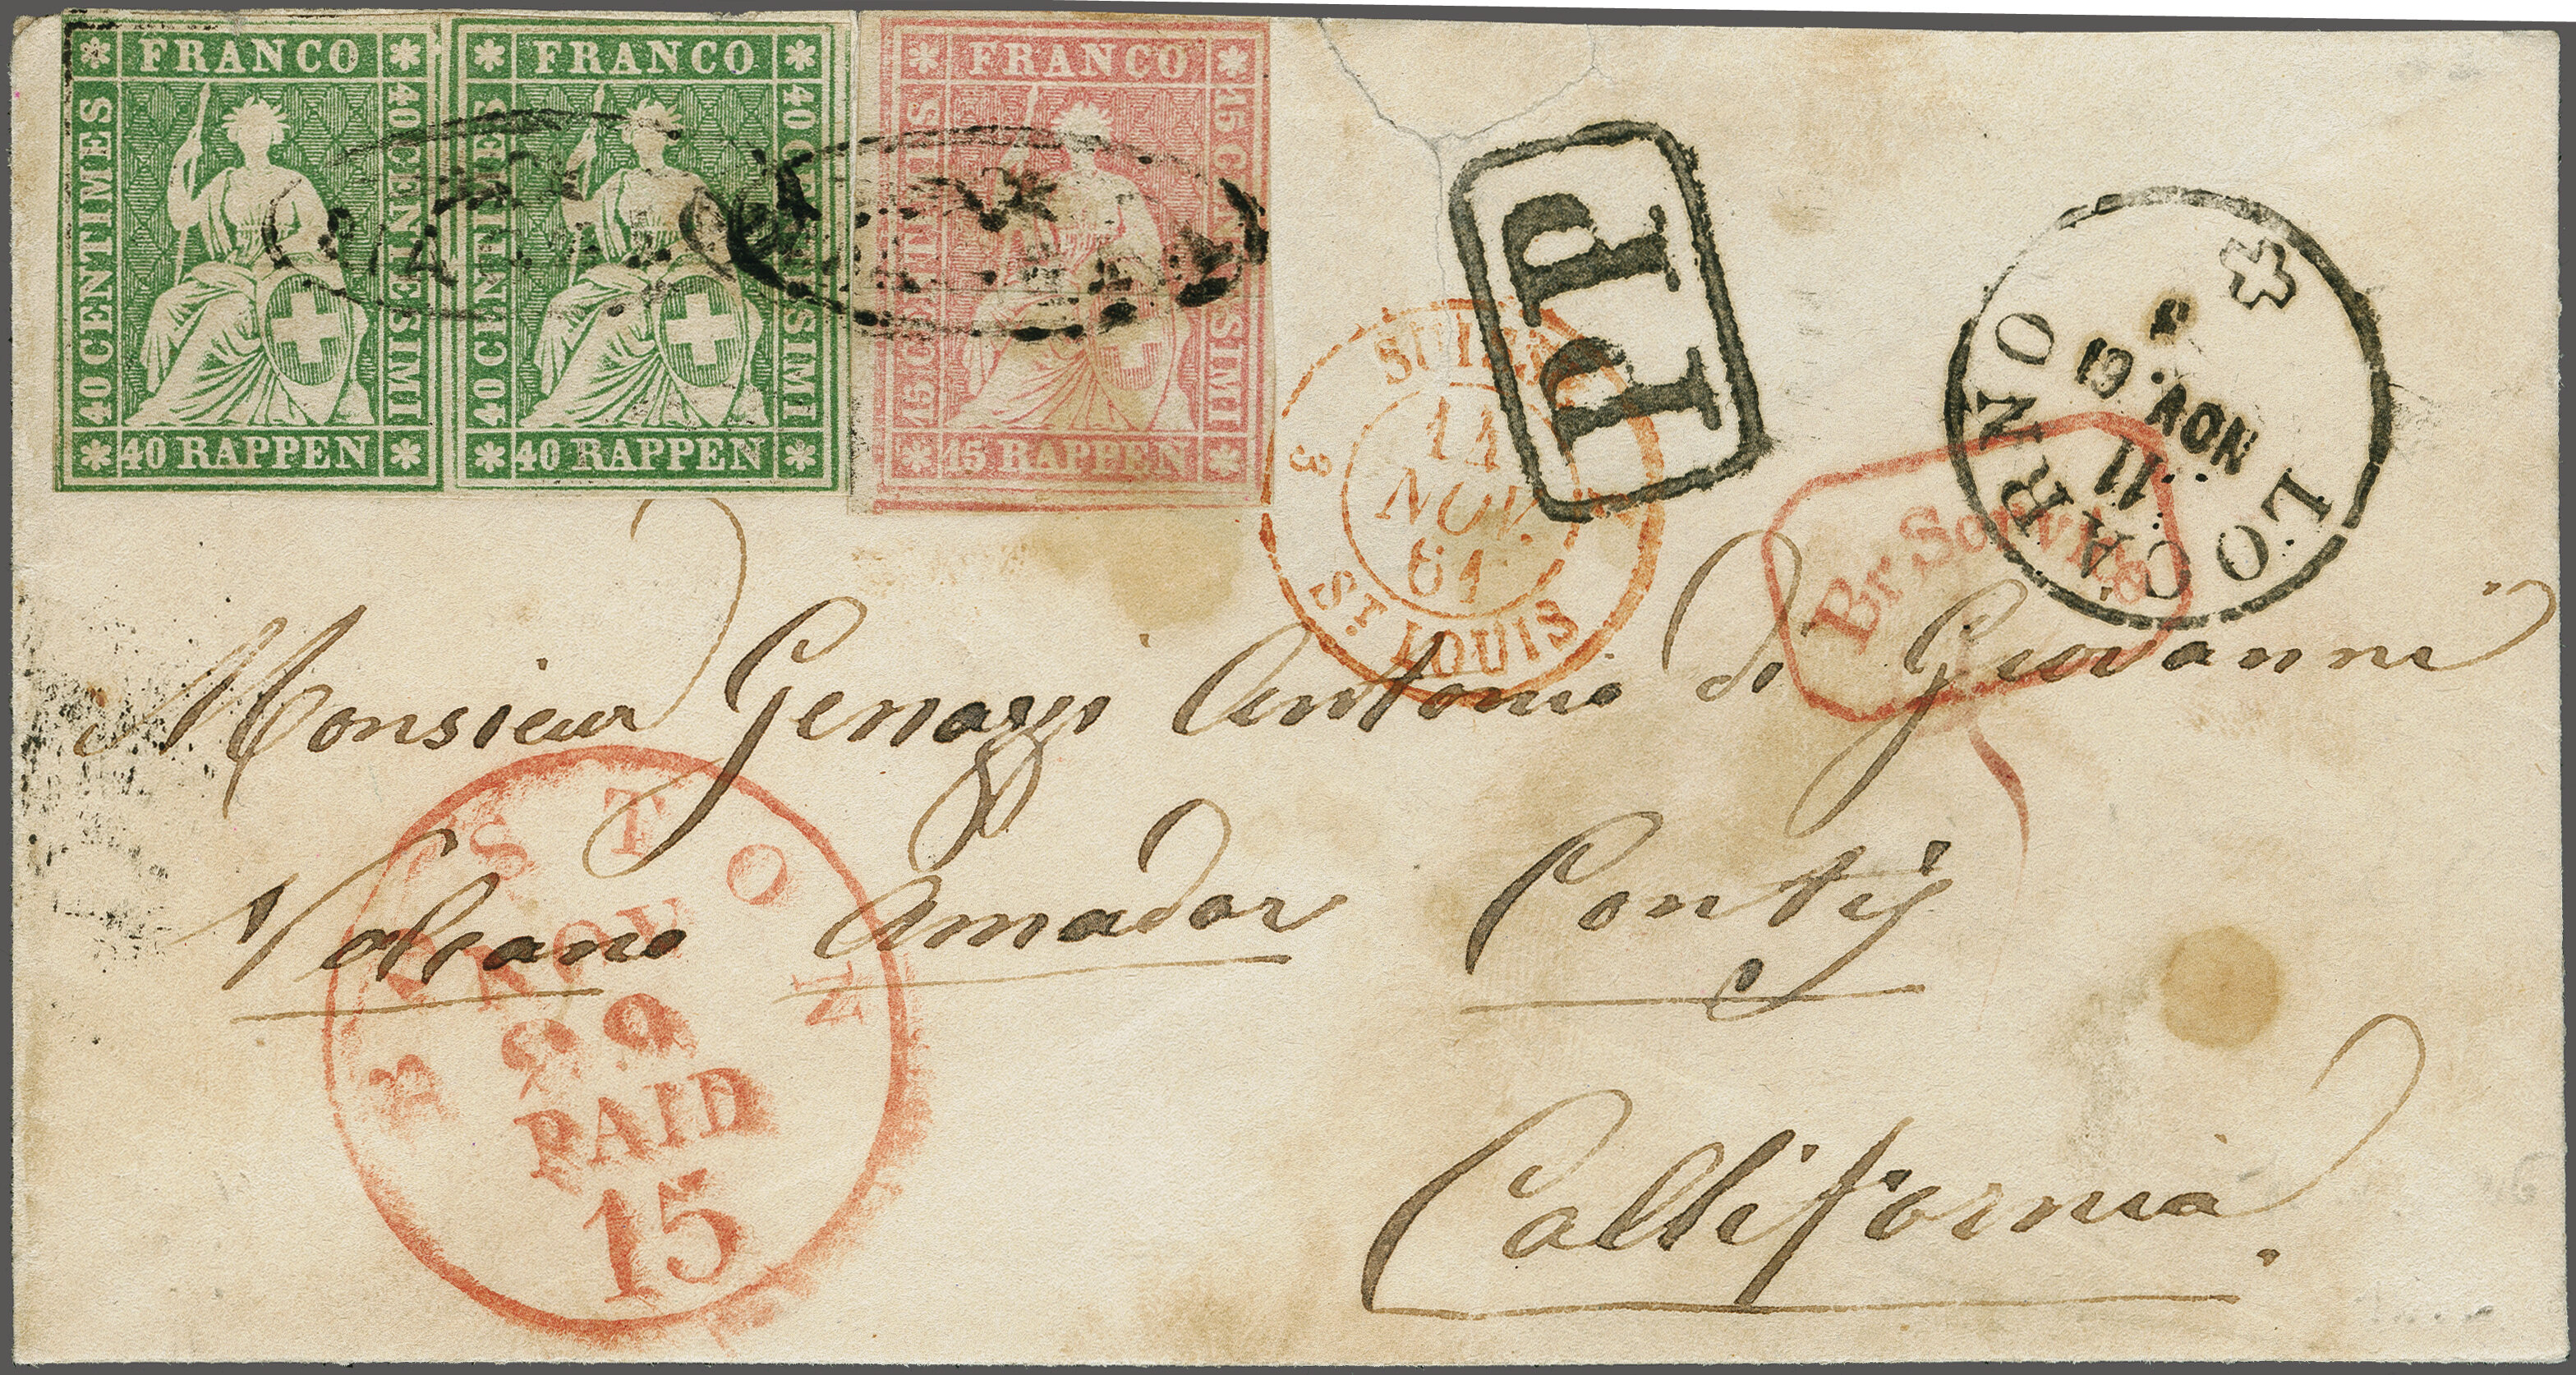 FRANCO
40 CENTIMES
40 CENTESIMI
40 RAPPEN
FRANCO
40 CENTIMES
40 CENTESIMI
40 RAPPEN
FRANCO
15 CENTIMES
15 CENTESIMI
15 RAPPEN
PP
LOCARNO
11
NOV.
SUISSE
11
NOV.
61
ST LOUIS
3
Br Service
Monsieur Genazzi Antonio di Giovanni
Volcano Amador Conty
Callifornia.
BOSTON
NOV
29
PAID
15